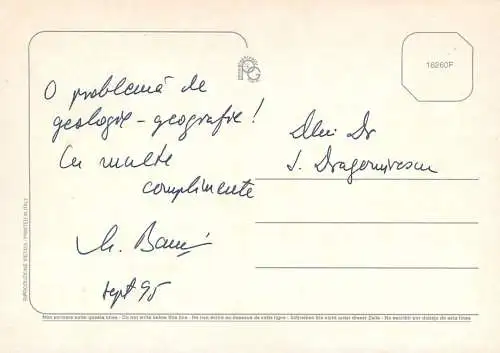 O problemă de
geologie - geografie!
Cu multe
complimente
sept 95
Dlui Dr
J. Dragomirescu
16260F
Non scrivere sotto questa linea - Do not write below this line - Ne rien écrire au-dessous de cette ligne - Schreiben Sie nicht unter dieser Zeile - No escribir por debajo de esta línea